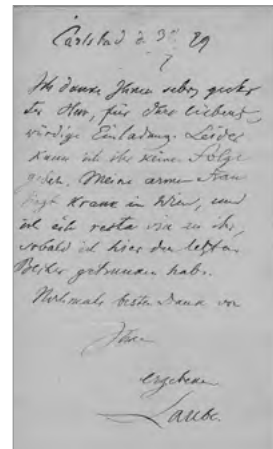 Carlsbad d. 3/7 79
Ich danke Ihnen sehr, geehr
ter Herr, für Ihre liebens
würdige Einladung. Leider
kann ich ihr keine Folge
geben. Meine arme Frau
liegt krank in Wien, und
ich eile resta via zu ihr,
sobald ich hier den letzten
Becher getrunken habe.
Nochmals besten Dank von
Ihrem
ergebenen
Laube.